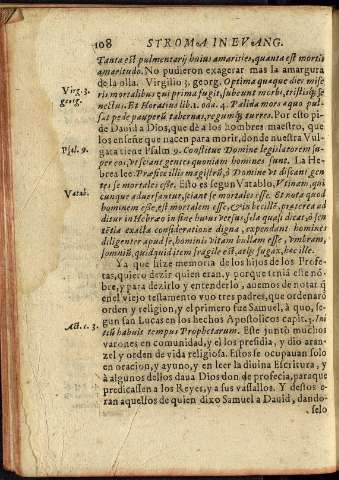 108 STROMA IN EVANG.
Tanta est pulmentarij huius amarities, quanta est mortis
amaritudo. No pudieron exagerar mas la amargura
de la olla. Virgilio 3. georg. Optima quæque dies mise
Virg. 3.
georg.
ris mortalibus qui prima fugit, subeunt morbi, tristisq; se
nectus. Et Horatius lib. 1. oda. 4. Palida mors æquo pul-
sat pede pauperũ tabernas, regumq; turres. Por esto pi-
de Dauid a Dios, que dè a los hombres maestro, que
los enseñe que nacen para morir, donde nuestra Vul-
Psal. 9.
gata tiene Psalm 9. Constitue Domine legislatorem su-
per eos, vt sciant gentes quoniam homines sunt. La He-
brea lee: Præfice illis magistrũ, ò Domine vt discant gen
tes se mortales esse. Esto es segun Vatablo, Vtinam, qui
Vatab.
cunque aduersantur, sciant se mortales esse. Et nota quod
hominem esse, est mortalem esse. Et sic
ditur in Hebræo in fine huius versus: sela quasi dicas, ò sen
tẽtia exacta consideratione digna, expendant homines
diligenter apud se, hominis vitam bullam esse, vmbram,
somniũ, quidquid item fragile est, atq; fugax, hæc ille.
Ya que hize memoria de los hijos de los Profe-
tas, quiero dezir quien eran, y porque tenià este nõ-
bre, y para dezirlo y entenderlo, auemos de notar q̃
en el viejo testamento vuo tres padres, que ordenarõ
orden y religion, y el primero fue Samuel, à quo, se-
gun san Lucas en los hechos Apostolicos capit. 3. Ini
Act. c. 3.
tiũ habuit tempus Prophetarum. Este juntò muchos
varones en comunidad, y el los presidia, y dio aran-
zel y orden de vida religiosa. Estos se ocupauan solo
en oracion, y ayuno, y en leer la diuina Escritura, y
à algunos dellos daua Dios don de profecia, paraque
predicassen a los Reyes, y a sus vassallos. Y destos e-
ran aquellos de quien dixo Samuel a Dauid, dando-
selo